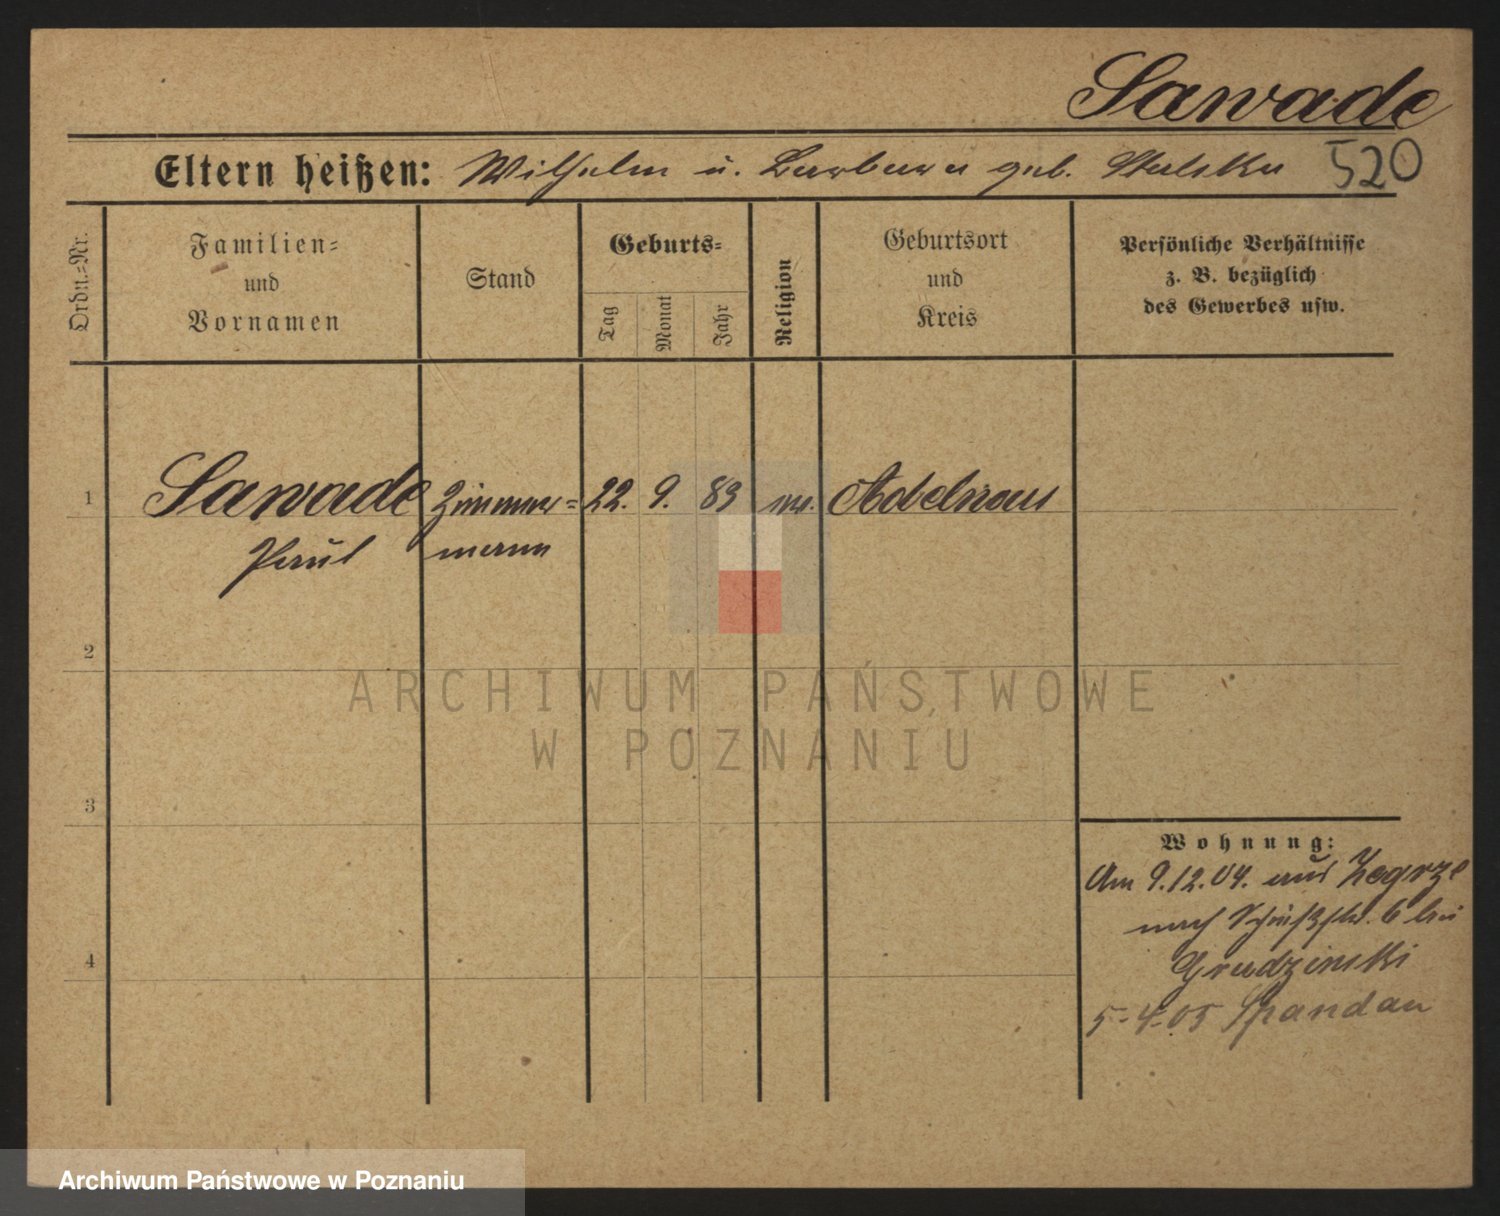 Sawade
Eltern heißen: Wilhelm u. Barbara geb. Stalska 520
Ordn.-Nr.
Familien-
und
Vornamen
Stand
Geburts-
Tag
Monat
Jahr
Religion
Geburtsort
und
Kreis
Persönliche Verhältnisse
z. B. bezüglich
des Gewerbes usw.
1 Sawade Zimmer- 22. 9. 83 Adelnau
Paul mann
2
3
4
ARCHIWUM PAŃSTWOWE
W POZNANIU
Wohnung:
Am 9.12.04. aus Zegrze
nach 6 bei
Grudzinski
5-4-05 Spandau
Archiwum Państwowe w Poznaniu